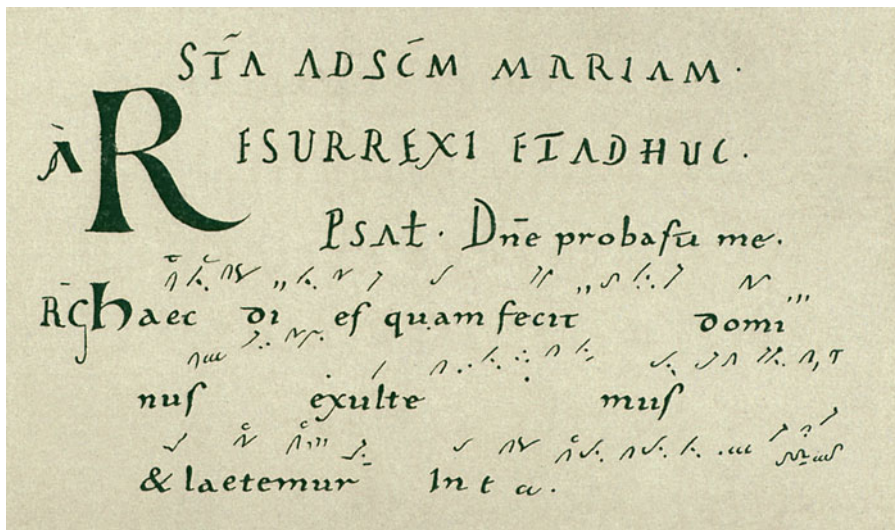 STĀ AD SC̄M MARIAM ·
À RESURREXI ETADHUC ·
PSAł · Dn̄e probaſtī me ·
R̄G haec di eſ quam fecit domi
nuſ exulte muſ
& laetemur In e a .